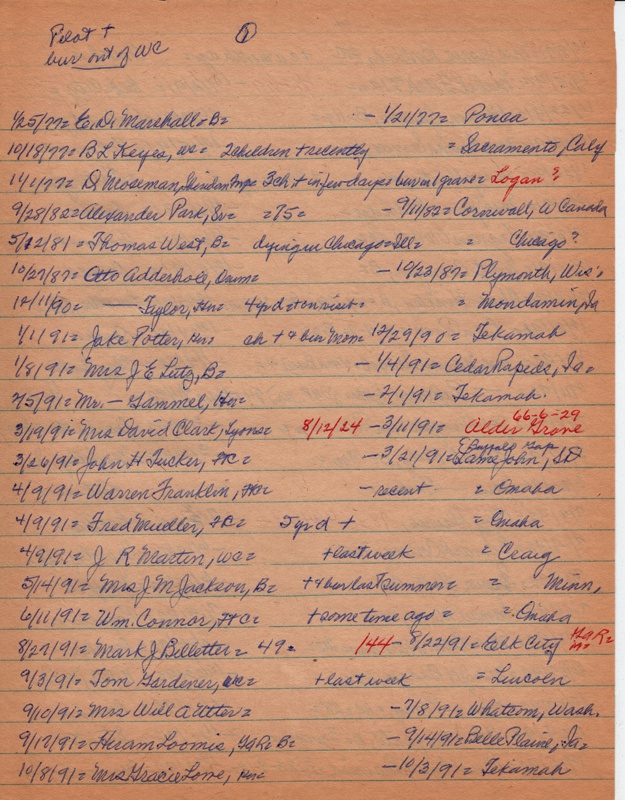 Pilot + ①
bur out of WC
1/25/77= E. D. Marshall= B= – 1/21/77= Ponca
10/18/77= B L Keyes, wc= 2 children + recently = Sacramento, Caly
11/1/77= D. Moseman, 3 ch + in few days bur in 1 grave= Logan?
9/28/82= Alexander Park, Sr= =75= – 9/11/82= Cornwall, W Canada
5/12/81= Thomas West, B= dying in Chicago= Ill= = Chicago?
10/27/87= Otto Adderhole, – 10/23/87= Plymonth, Wis.
12/11/90= — Tyler, Hn= 4 yr d + on visit= = Mondamin, Ia
1/1/91= Jake Potter, Hn= ch + & bur Mon= 12/29/90= Tekamah
1/8/91= Mrs J E Lutz, B= – 1/4/91= Cedar Rapids, Ia=
2/5/91= Mr. — Gammel, Hn= – 2/1/91= Tekamah.
3/19/91= Mrs David Clark, Lyons= 8/12/24 – 3/11/91= 66-6-29 Alder Grove
3/26/91= John H Tucker, HC= – 3/21/91= Lame John, SD (Buffalo Gap
4/9/91= Warren Franklin, HC= – recent = Omaha
4/9/91= Fred Mueller, HC= 5 yr d + = Omaha
4/9/91= J R Martin, WC= + last week = Craig
5/14/91= Mrs J M Jackson, B= + & bur last summer= = Minn,
6/11/91= Wm. Connor, HC= + some time ago = = Omaha
8/27/91= Mark J Billetter= 49= 144 – 8/22/91= Elk City
9/3/91= Tom Gardener, WC= + last week = Lincoln
9/10/91= Mrs Will A Utter= – 7/8/91= Whatcom, Wash.
9/17/91= Hiram Loomis, B= – 9/14/91= Belle Plaine, Ia=
10/8/91= Mrs Gracie Lowe, Hn= – 10/3/91= Tekamah